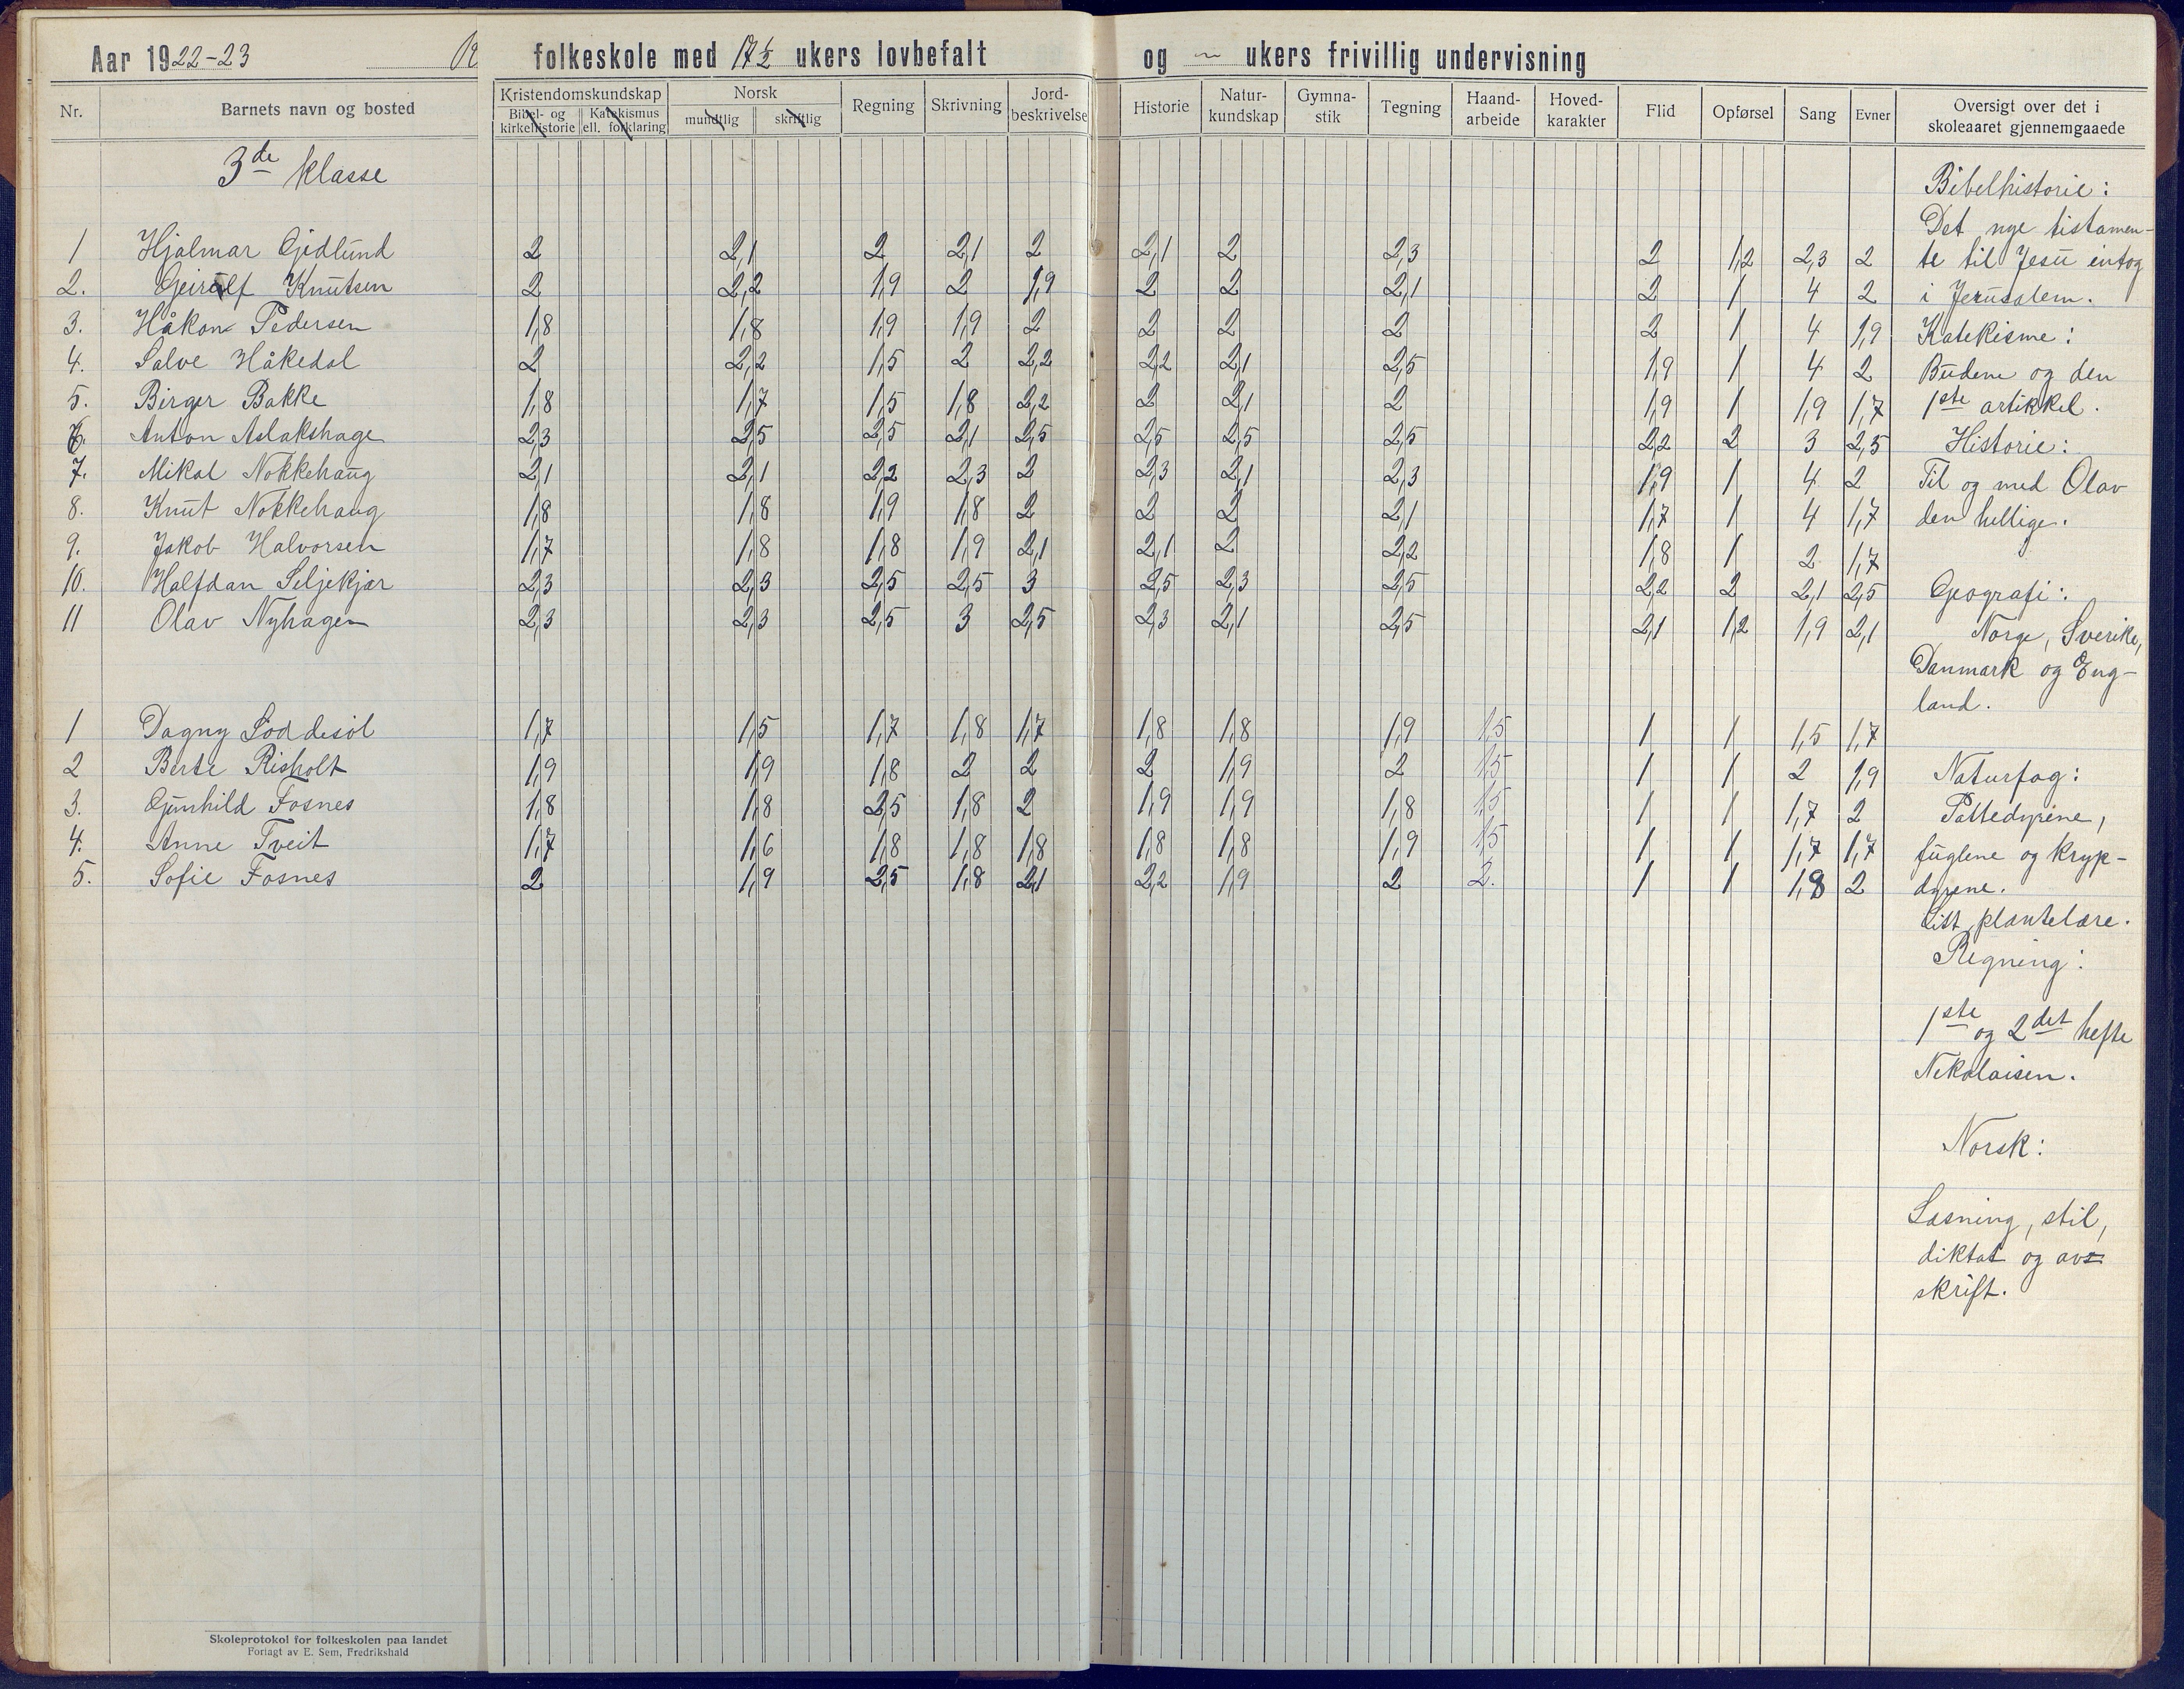 Aar 1922-23 folkeskole med 17 1/2 ukers lovbefalt og ~ ukers frivillig undervisning
Nr. Barnets navn og bosted Kristendomskundskap Bibel- og kirkehistorie Katekismus ell. forklaring Norsk mundtlig skriftlig Regning Skrivning Jord-beskrivelse Historie Natur-kundskap Gymna-stik Tegning Haand-arbeide Hoved-karakter Flid Opførsel Sang Evner Oversigt over det i skoleaaret gjennemgaaede
3de klasse
1 Hjalmar Gjedlund 2 2,1 2 2,1 2 2,1 2 2,3 2 1,2 2,3 2
2. Geirulf Knutsen 2 2,2 1,9 2 1,9 2 2 2,1 2 1 4 2
3. Håkon Pedersen 1,8 1,8 1,9 1,9 2 2 2 2 2 1 4 1,9
4. Salve Håkedal 2 2,2 1,5 2 2,2 2,2 2,1 2,5 1,9 1 4 2
5. Birger Bakke 1,8 1,7 1,5 1,8 2,2 2 2,1 2 1,9 1 1,9 1,7
6. Anton Aslakshage 2,3 2,5 2,5 2,1 2,5 2,5 2,5 2,5 2,2 2 3 2,5
7. Mikal Nokkehaug 2,1 2,1 2,2 2,3 2 2,3 2,1 2,3 1,9 1 4 2
8. Knut Nokkehaug 1,8 1,8 1,9 1,8 2 2 2 2,1 1,7 1 4 1,7
9. Jakob Halvorsen 1,7 1,8 1,8 1,9 2,1 2,1 2 2,2 1,8 1 2 1,7
10. Halfdan Seljekjær 2,3 2,3 2,5 2,5 3 2,5 2,3 2,5 2,2 2 2,1 2,5
11 Olav Nyhagen 2,3 2,3 2,5 3 2,5 2,3 2,1 2,5 2,1 1,2 1,9 2,1
1 Dagny Loddesöl 1,7 1,5 1,7 1,8 1,7 1,8 1,8 1,9 1,5 1 1 1,5 1,7
2 Berte Risholt 1,9 1,9 1,8 2 2 2 1,9 2 1,5 1 1 2 1,9
3. Gunhild Fosnes 1,8 1,8 2,5 1,8 2 1,9 1,9 1,8 1,5 1 1 1,7 2
4. Anne Tveit 1,7 1,6 1,8 1,8 1,8 1,8 1,8 1,9 1,5 1 1 1,7 1,7
5. Sofie Fosnes 2 1,9 2,5 1,8 2,1 2,2 1,9 2 2. 1 1 1,8 2
Bibelhistorie:
Det nye tistamen-
te til Jesu intog
i Jerusalem.
Katekisme:
Budene og den
1ste artikkel.
Historie:
Til og med Olav
den hellige.
Geografi:
Norge, Sverike,
Danmark og Eng-
land.
Naturfag:
Pattedyrene,
fuglene og kryp-
dyrene.
Litt plantelære.
Regning:
1ste og 2det hefte
Nikolaisen.
Norsk:
Læsning, stil,
diktat og av-
skrift.
Skoleprotokol for folkeskolen paa landet
Forlagt av E. Sem, Fredrikshald